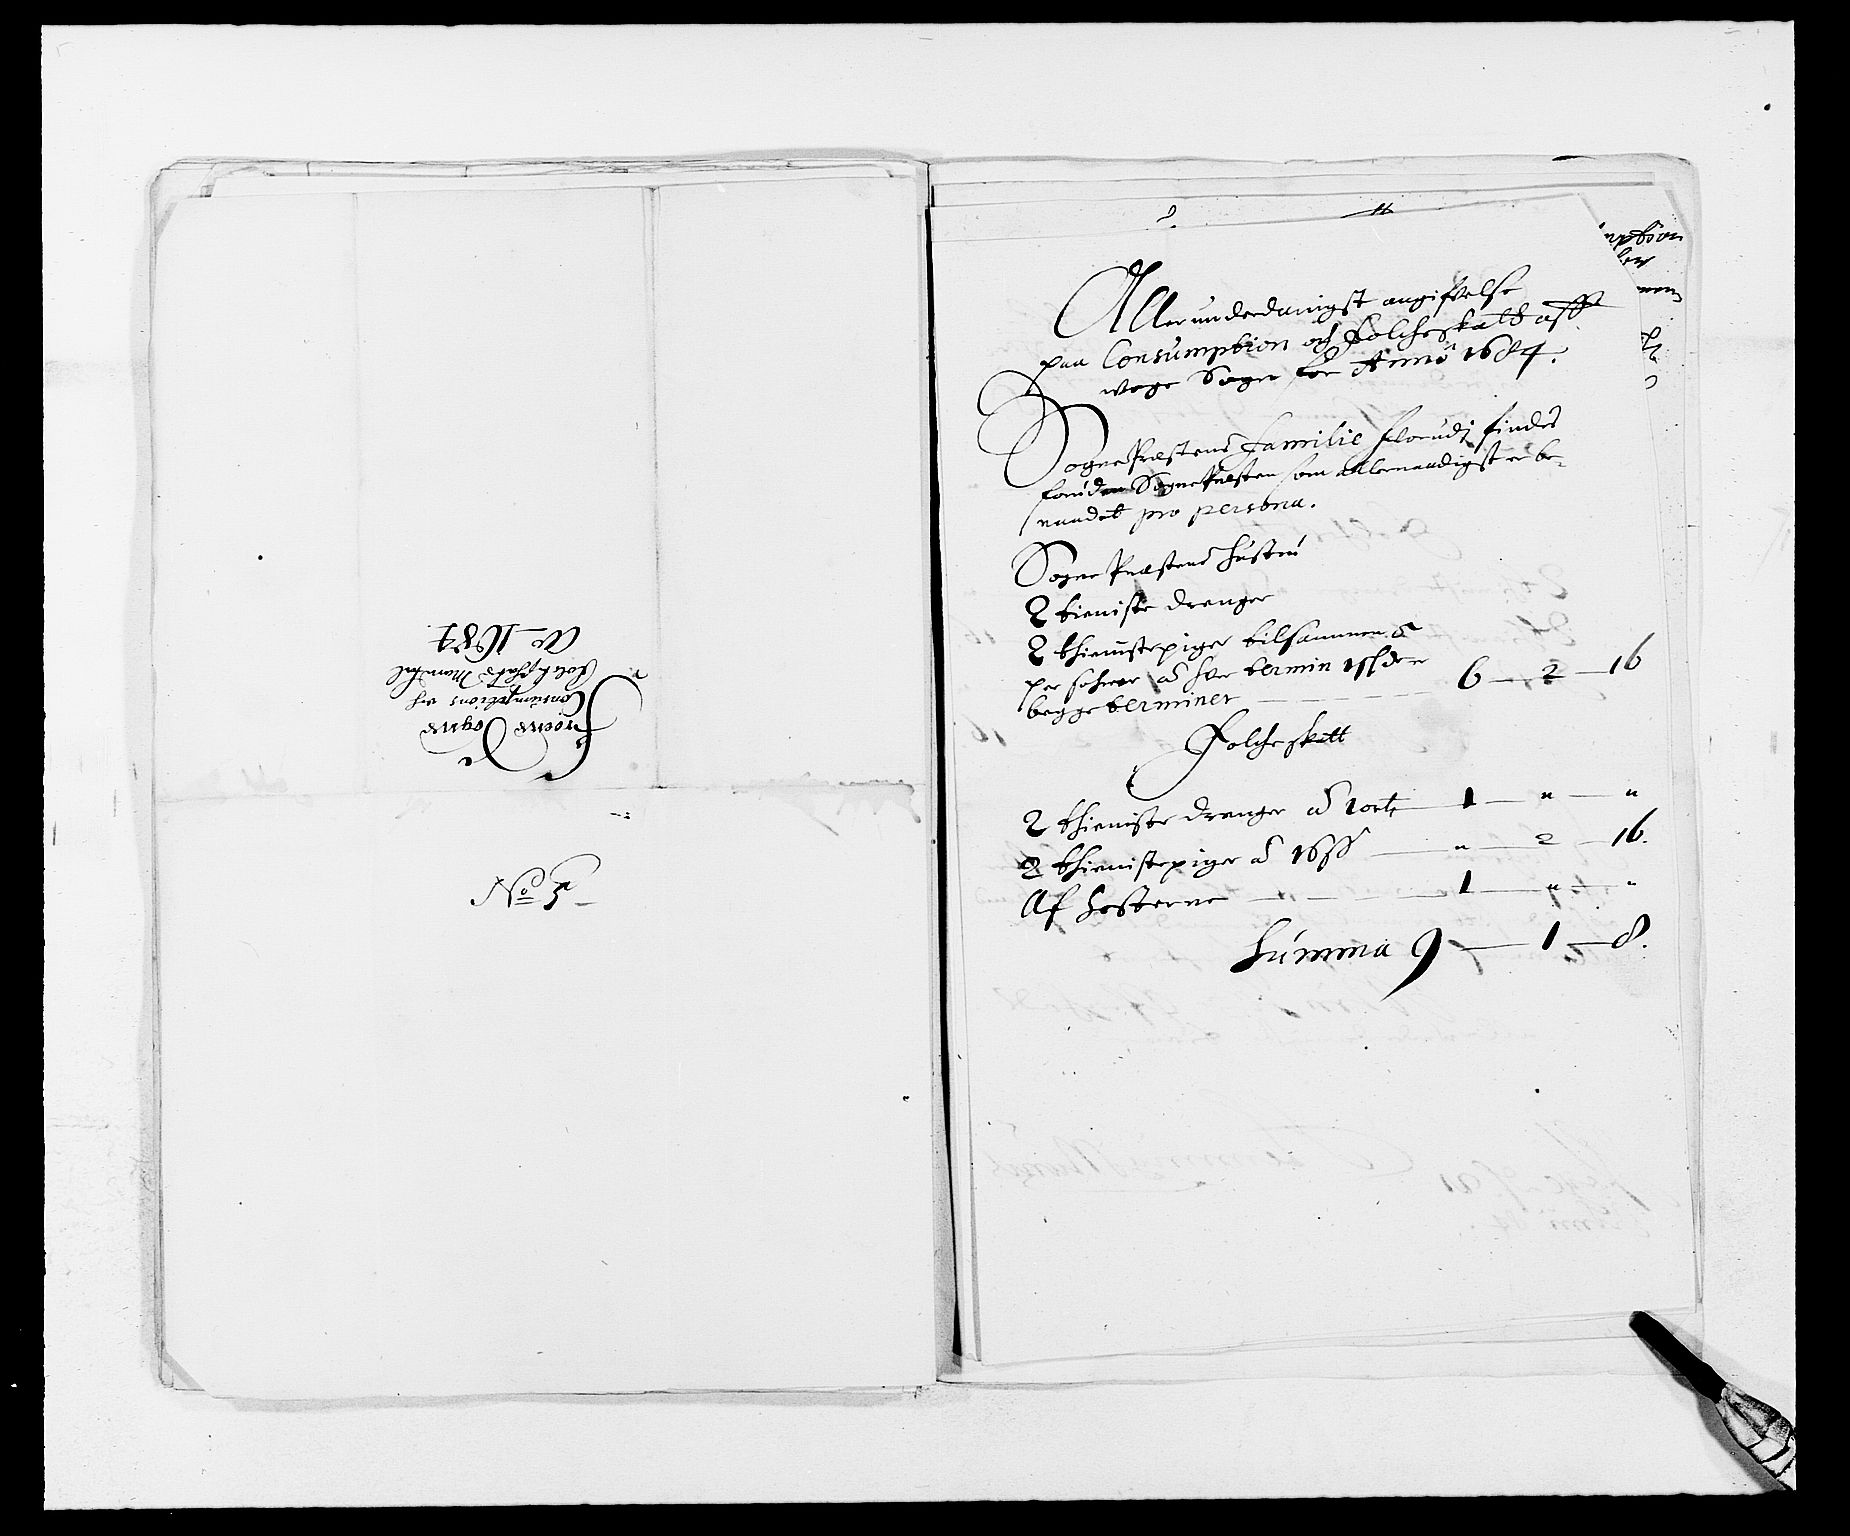 Allerunderdanigst angifvelse
paa Consumption och Folcheskatt aff
wege Sogn for Anno 1684.
SognePræstens familie
foruden SognePræsten som allernaadigst er be-
naadet pro persona.
Sogne Præstens hustru
2 tieniste drenger
2 thienistepiger tilsammen 5
personer a hver termin 15
begge terminer 6 — 2 — 16
Folche skatt
2 thieniste drenger a 1 ort 1 — " — "
2 thienistepiger a 16 ß " — 2 — 16.
Af hesterne 1 — " — "
Summa 9 — 1 — 8.
Sogns
Consumptions och
Folckschats Mandtal
Ao 1684
No 5